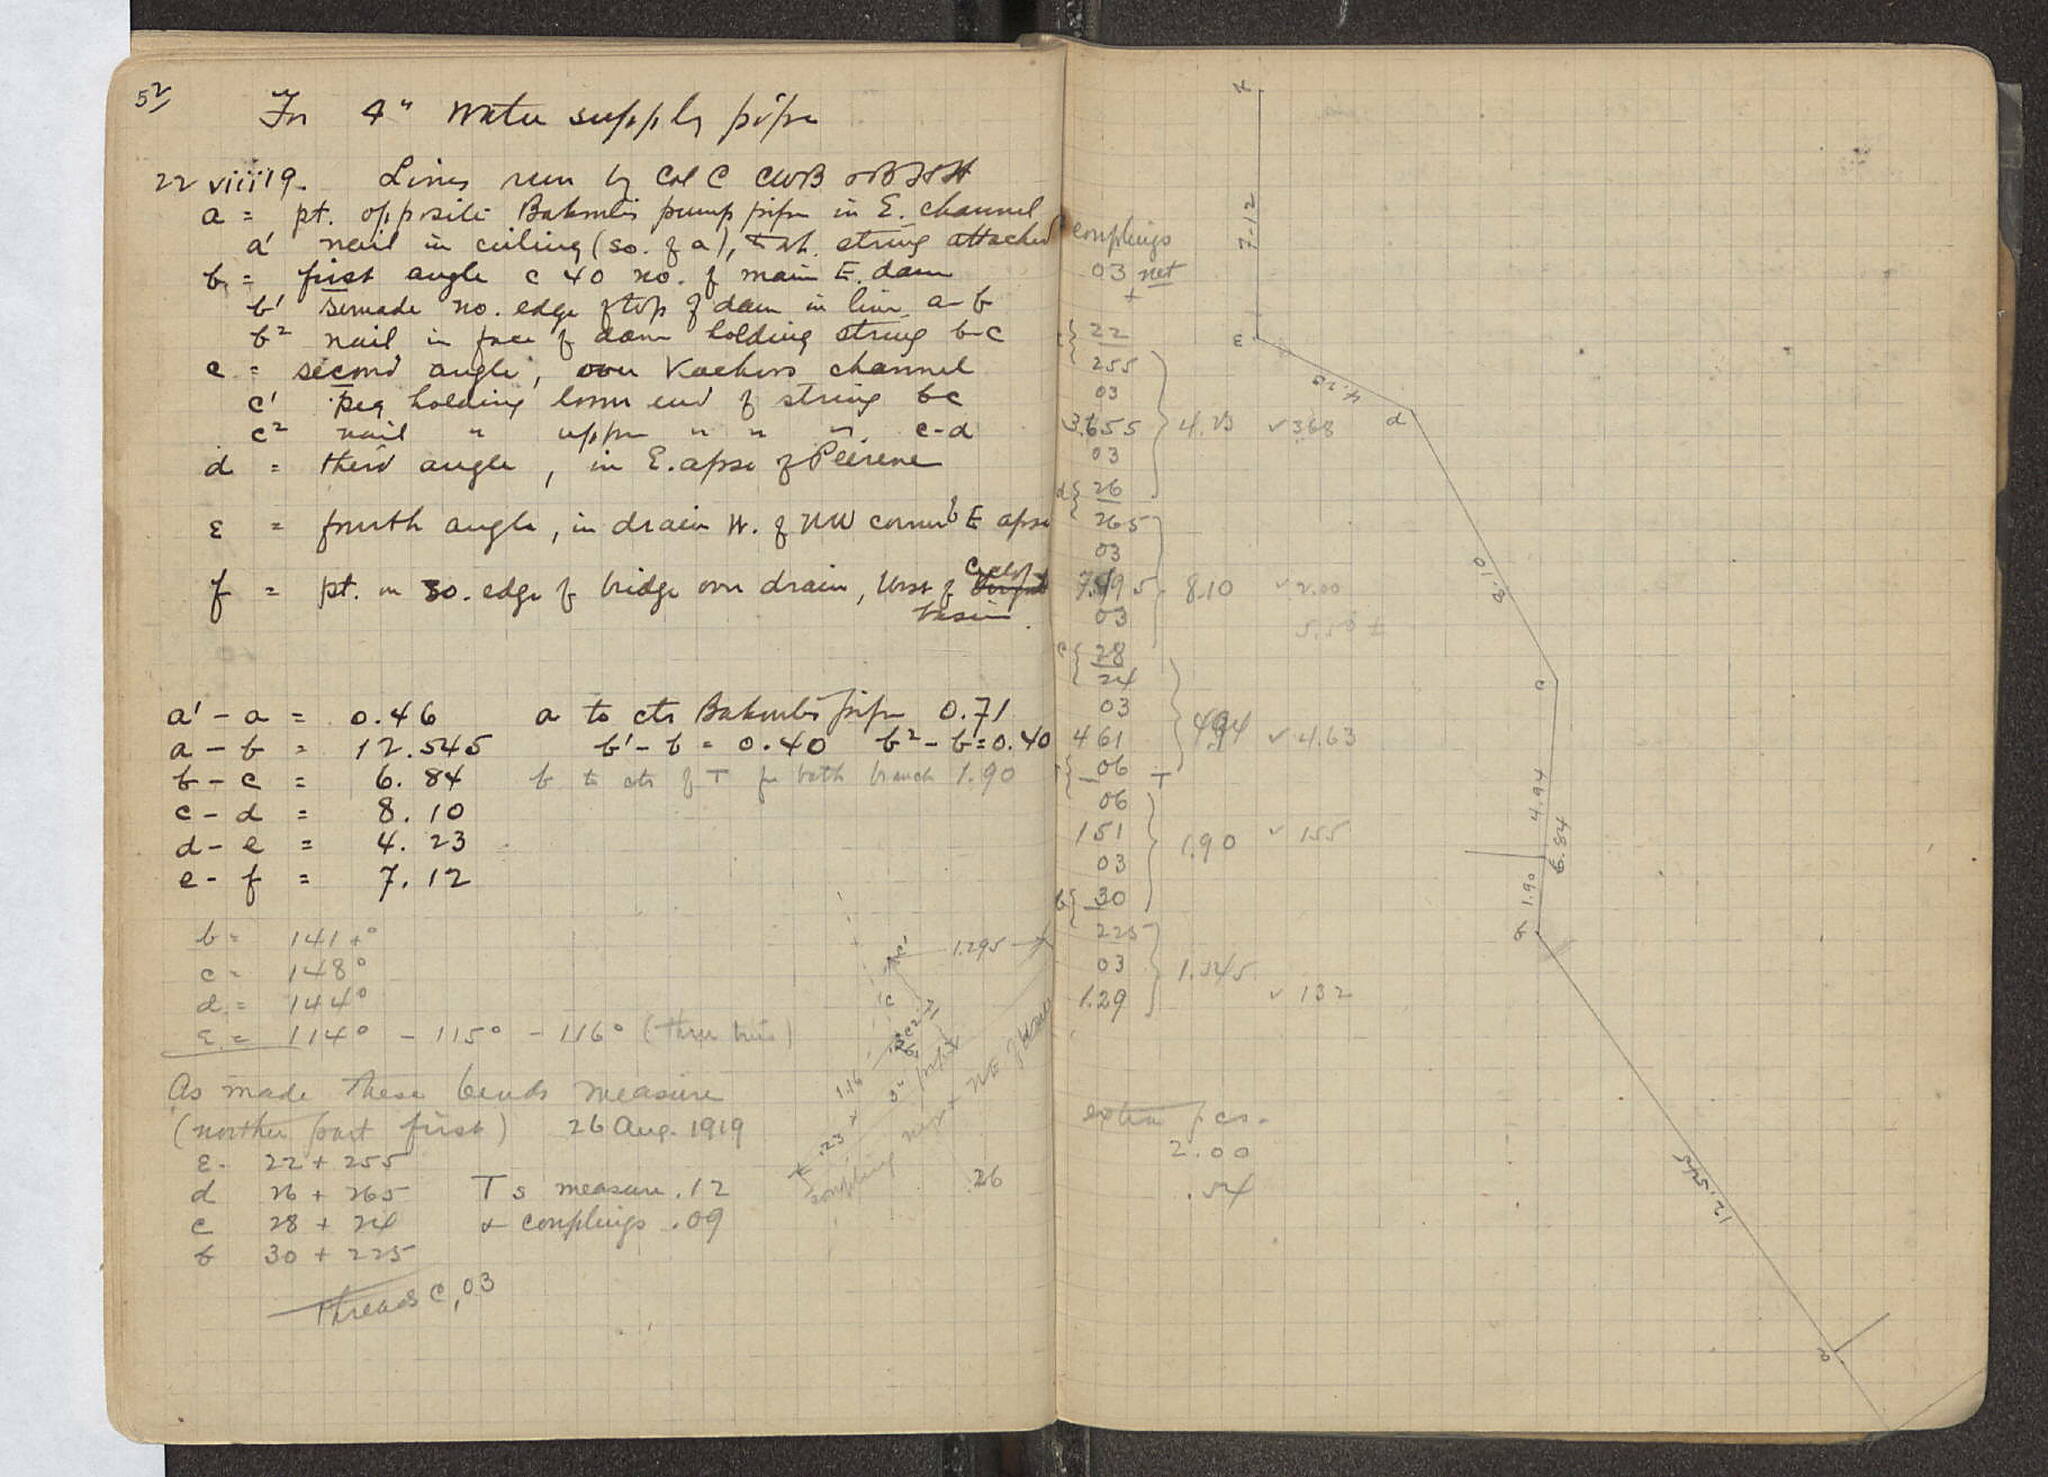 52
For 4" water supply pipe
22 viii 19. Lines run by Col C CWB & BHH
a = pt. opposite Bakoulis pump pipe in E. channel
a' nail in ceiling (so. of a), string attached
b = first angle c 40 no. of main E. dam
b' no. edge of top of dam in line a-b
b² nail in face of dam holding string b-c
c = second angle, over channel
c' peg holding lower end of string bc
c² nail " upper " " " c-d
d = third angle, in E. apse of Peirene
ε = fourth angle, in drain W. of NW corner of E apse
f = pt. on so. edge of bridge over drain, West of
basin.
a' - a = 0.46 a to ctr Bakoulis pipe 0.71
a - b = 12.545 b' - b = 0.40 b² - b = 0.40
b - c = 6.84 b to ctr of T for bath branch 1.90
c - d = 8.10
d - e = 4.23
e - f = 7.12
b = 141+°
c = 148°
d = 144°
ε = 114° - 115° - 116° (
As made these bends measure
(northern part first) 26 Aug. 1919
ε. 22 + 255
d 26 + 265 Ts measure .12
c 28 + 24 & couplings .09
b 30 + 225
threads c, 03
1.295
1.16
.23
coupling
3" pipe
next NE of
.26
couplings
03 net
+
22
255
03
3.655 4.23 ✓ 368
03
d 26
265
03
7.495 8.10 ✓ 2.00
03 5.50 ±
c 28
24
03
461 4.94 ✓ 4.63
06 T
06
151 1.90 ✓ 155
03
b 30
225
03 1.545
1.29 ✓ 132
extra pcs.
2.00
.54
f
7.12
ε
4.23
d
8.10
c
4.94
6.84
1.90
b
12.545
a